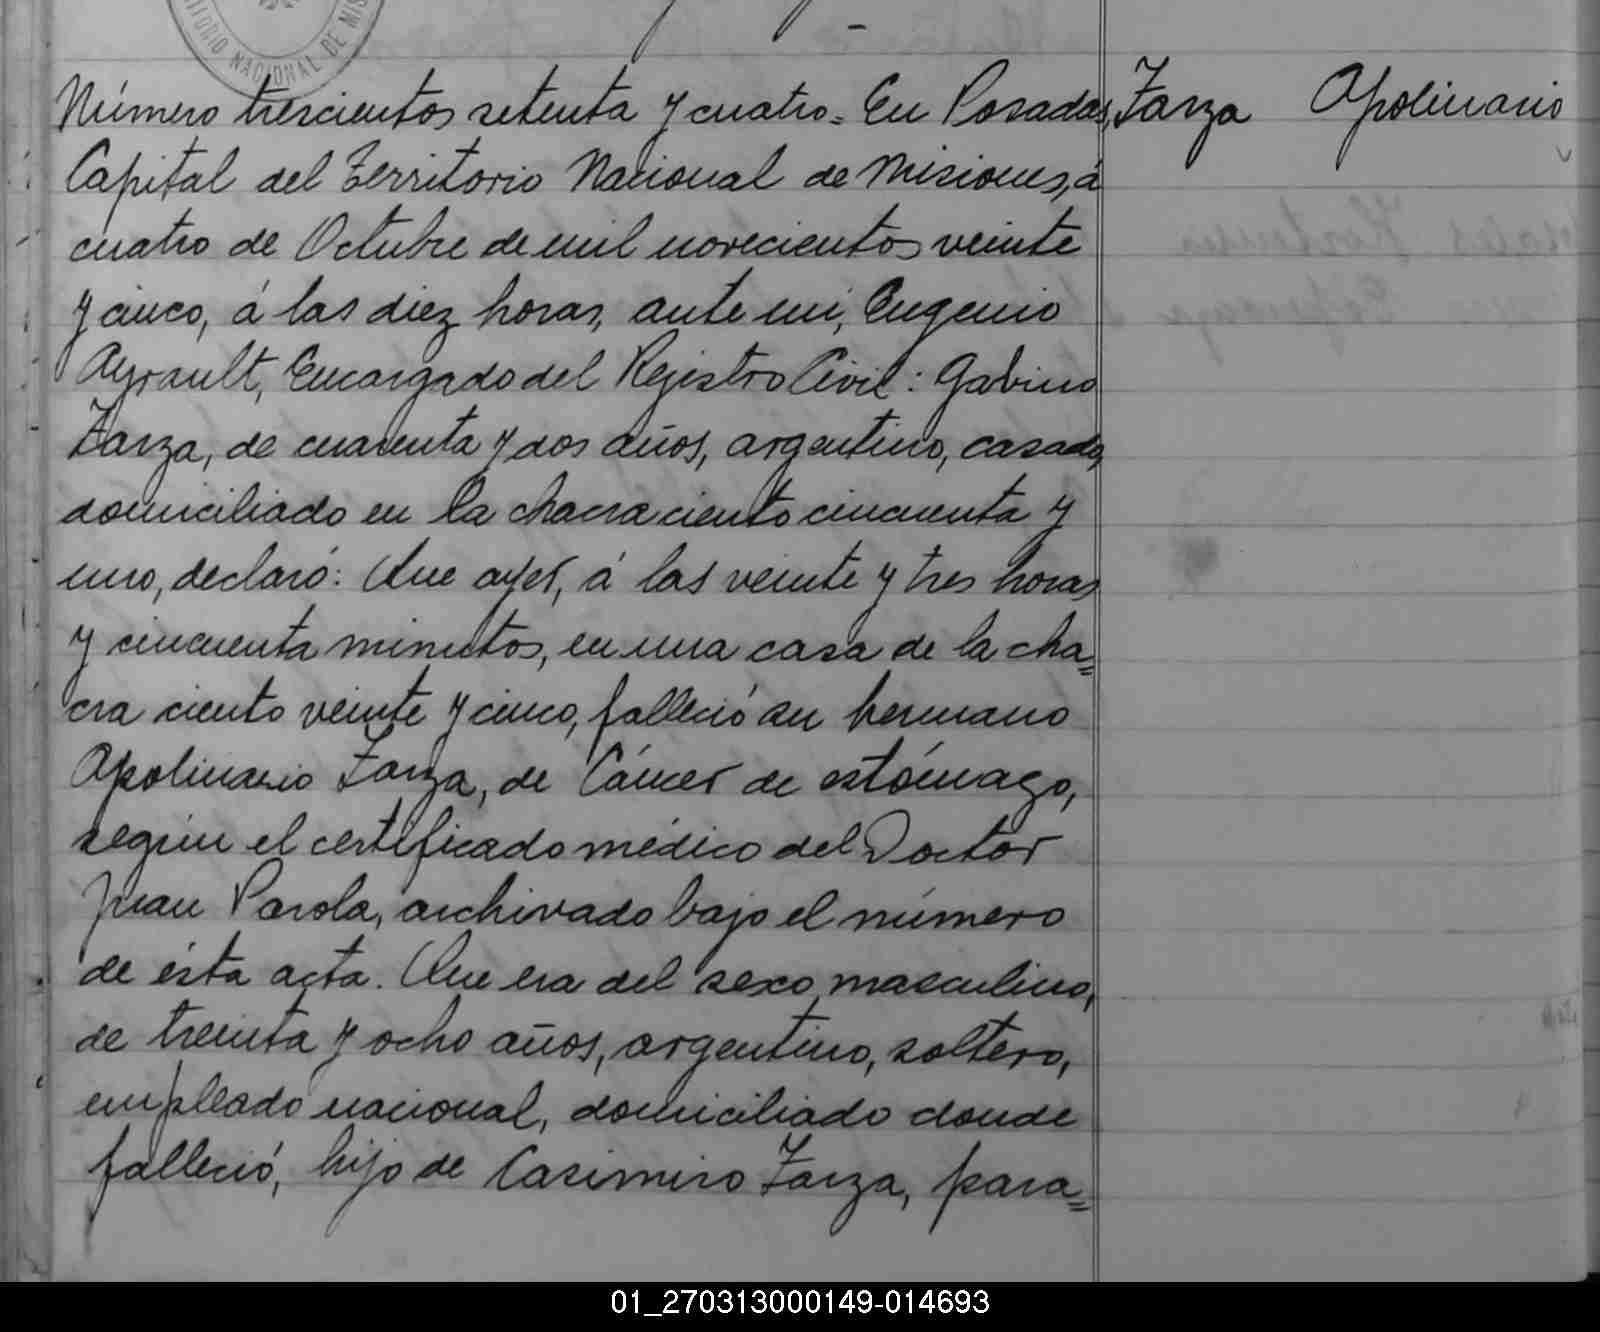 TORIO NACIONAL DE MIS
Número trescientos setenta y cuatro.= En Posadas,
Zarza Apolinario
Capital del Territorio Nacional de Misiones, á
cuatro de Octubre de mil novecientos veinte
y cinco, á las diez horas, ante mi, Eugenio
Ayrault, Encargado del Rejistro Civil: Gabino
Zarza, de cuarenta y dos años, argentino, casado,
domiciliado en la chacra ciento cincuenta y
uno, declaró: Que ayer, á las veinte y tres horas
y cincuenta minutos, en una casa de la cha=
cra ciento veinte y cinco, falleció su hermano
Apolinario Zarza, de Cáncer de estómago,
según el certificado médico del Doctor
Juan Parola, archivado bajo el número
de ésta acta. Que era del sexo masculino,
de treinta y ocho años, argentino, soltero,
empleado nacional, domiciliado donde
falleció, hijo de Casimiro Zarza, para=
01_270313000149-014693